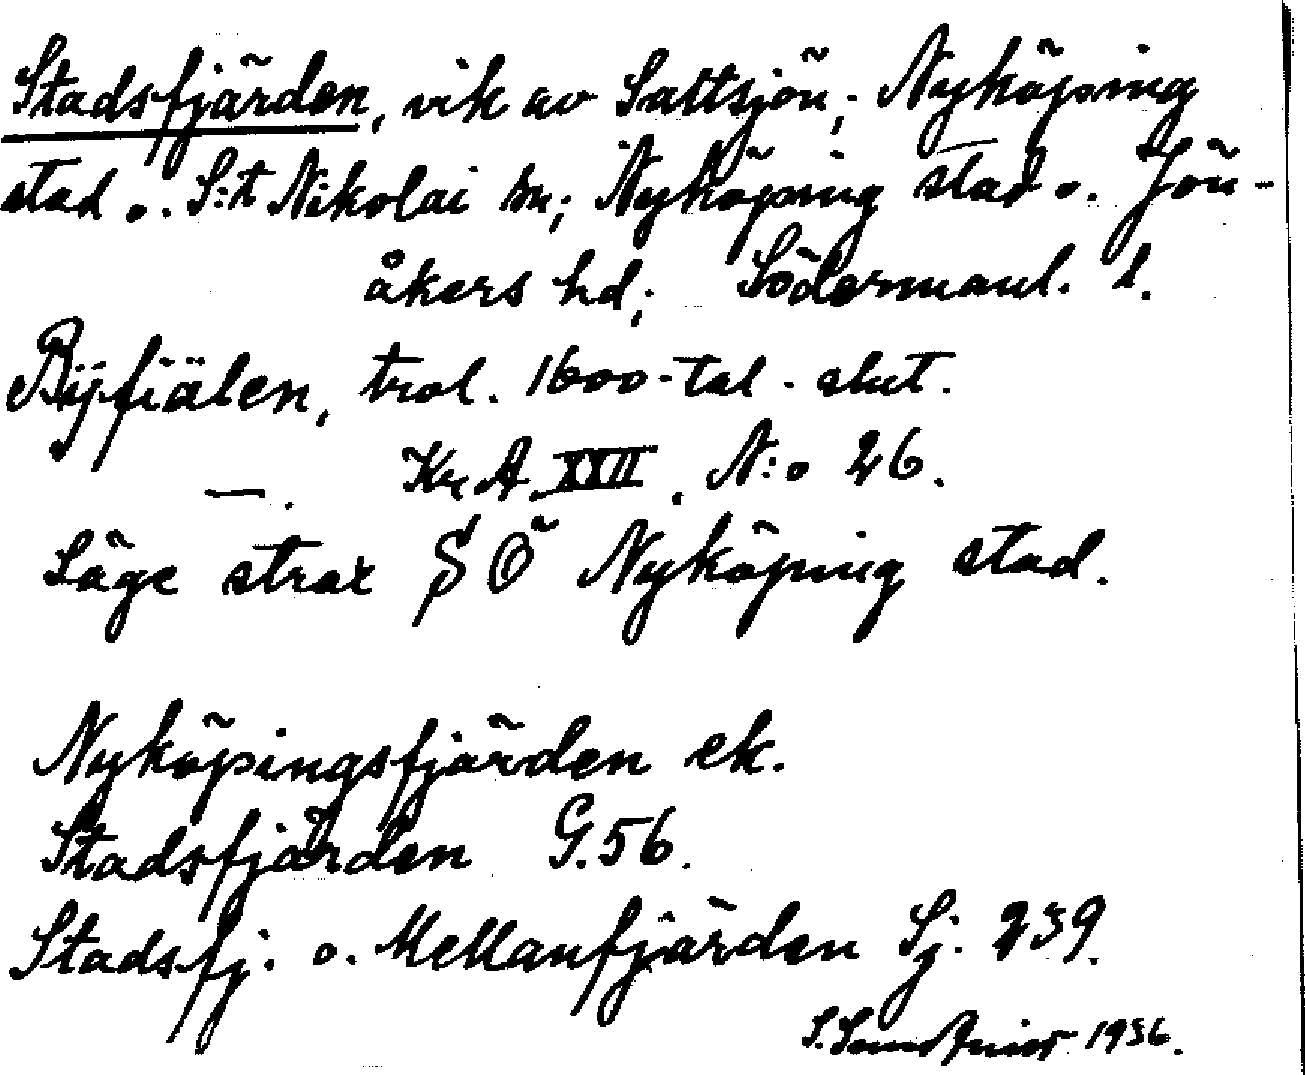 Stadsfjärden, vik av Saltsjön; Nyköping
stad o. S:t Nikolai sn; Nyköping stad o. Jön-
åkers hd; Södermanl. l.
Bÿfiälen, trol. 1600-tal-slut.
—. Kr A. XXII. N:o 26.
Läge strax SÖ Nyköping stad.
Nyköpingsfjärden ek.
Stadsfjärden G.56.
Stadsfj. o. Mellanfjärden Sj. 239.
S. 1936.